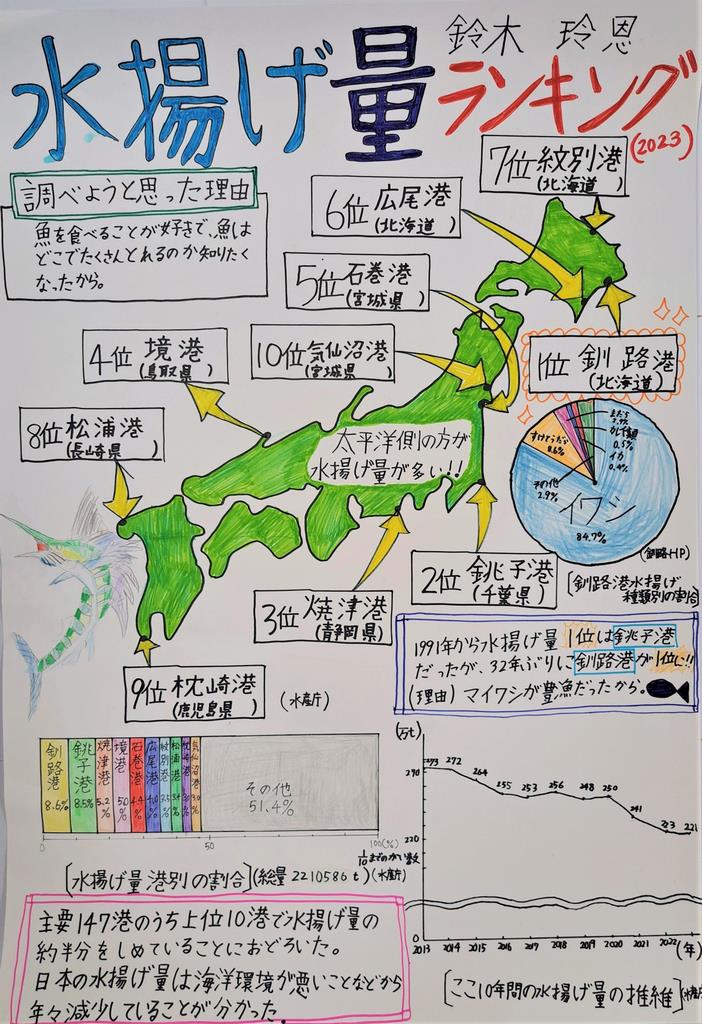 鈴木 玲恩
水揚げ量ランキング
(2023)
調べようと思った理由
魚を食べることが好きで、魚は
どこでたくさんとれるのか知りたく
なったから。
7位 紋別港
(北海道)
6位 広尾港
(北海道)
5位 石巻港
(宮城県)
4位 境港
(鳥取県)
10位 気仙沼港
(宮城県)
1位 釧路港
(北海道)
8位 松浦港
(長崎県)
太平洋側の方が
水揚げ量が多い!!
まだら
カレイ類
0.5%
イカ
0.4%
すけとうだら
8.6%
その他
2.9%
イワシ
84.7%
(釧路HP)
[釧路港水揚げ
種類別の割合]
2位 銚子港
(千葉県)
3位 焼津港
(静岡県)
9位 枕崎港
(鹿児島県)
(水産庁)
1991年から水揚げ量 1位は銚子港
だったが、32年ぶりに釧路港が1位に!!
(理由) マイワシが豊漁だったから。
釧路港 8.6%
銚子港 8.5%
焼津港 5.2%
境港 5.0%
石巻港 4.4%
広尾港 4.0%
紋別港 3.5%
松浦港 3.4%
枕崎港
気仙沼港 3.0%
その他
51.4%
0 50 100(%)
1/10までのがい数
[水揚げ量 港別の割合] (総量 2210586t) (水産庁)
(万t)
290
220
0
293 272 264 255 253 256 248 250 241 223 221
2013 2014 2015 2016 2017 2018 2019 2020 2021 2022 (年)
[ここ10年間の水揚げ量の推維] (水産
主要147港のうち上位10港で水揚げ量の
約半分をしめていることにおどろいた。
日本の水揚げ量は海洋環境が悪いことなどから
年々減少していることが分かった。